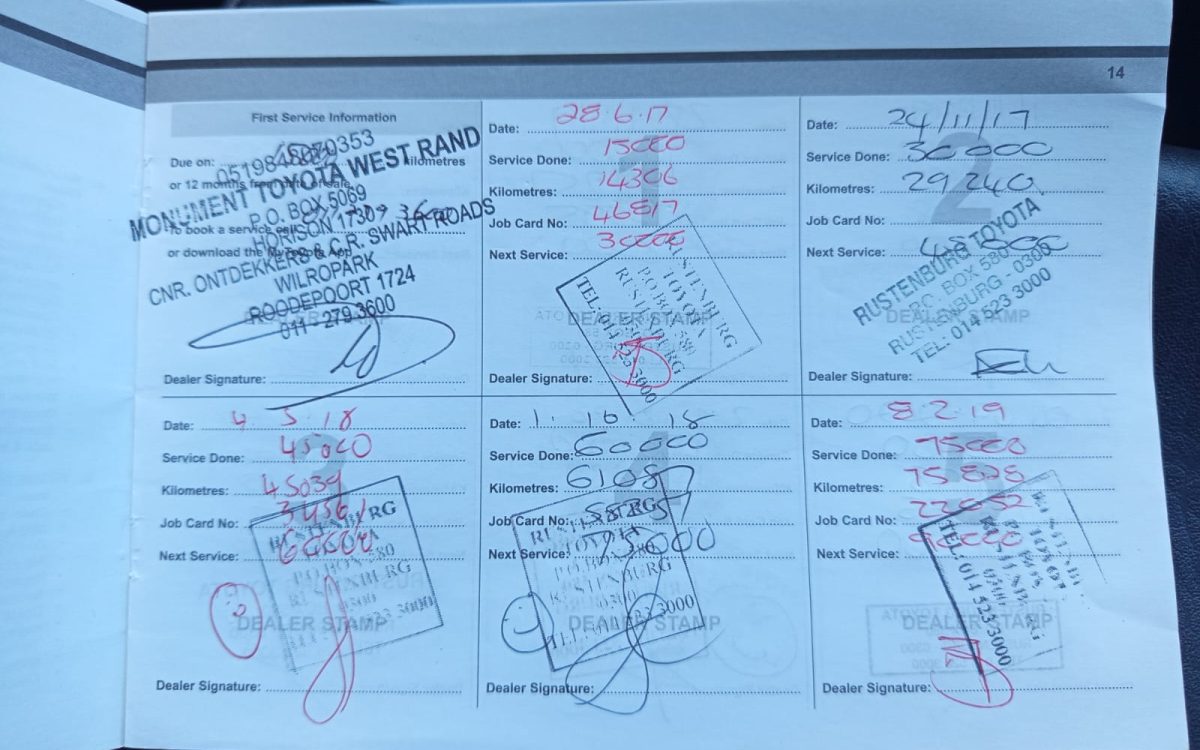 14
First Service Information
Due on: kilometres
0519848020353
or 12 months from date of sale
MONUMENT TOYOTA WEST RAND
P.O. BOX 5069
To book a service
HORISON 1730
or download the MyToyota App
CNR. ONTDEKKERS & C.R. SWART ROADS
WILROPARK
ROODEPOORT 1724
011 - 279 3600
Dealer Signature:
1
Date: 28.6.17
Service Done: 15000
Kilometres: 14306
Job Card No: 46817
Next Service: 30000
RUSTENBURG
TOYOTA
P.O. BOX 580
RUSTENBURG
TEL: 014 523 3000
DEALER STAMP
Dealer Signature:
2
Date: 24/11/17
Service Done: 30000
Kilometres: 29240
Job Card No:
Next Service: 45000
RUSTENBURG TOYOTA
P.O. BOX 580
RUSTENBURG 0300
TEL: 014 523 3000
DEALER STAMP
Dealer Signature:
3
Date: 4.5.18
Service Done: 45000
Kilometres: 45039
Job Card No:
Next Service: 60000
RUSTENBURG
P.O. BOX 580
RUSTENBURG
0300
523 3000
DEALER STAMP
Dealer Signature:
4
Date: 1.10.18
Service Done: 60000
Kilometres: 61087
Job Card No:
Next Service: 75000
RUSTENBURG
TOYOTA
P.O. BOX 580
RUSTENBURG
TEL: 014 523 3000
DEALER STAMP
Dealer Signature:
5
Date: 8.2.19
Service Done: 75000
Kilometres: 75828
Job Card No:
Next Service: 90000
TEL: 014 523 3000
DEALER STAMP
Dealer Signature: